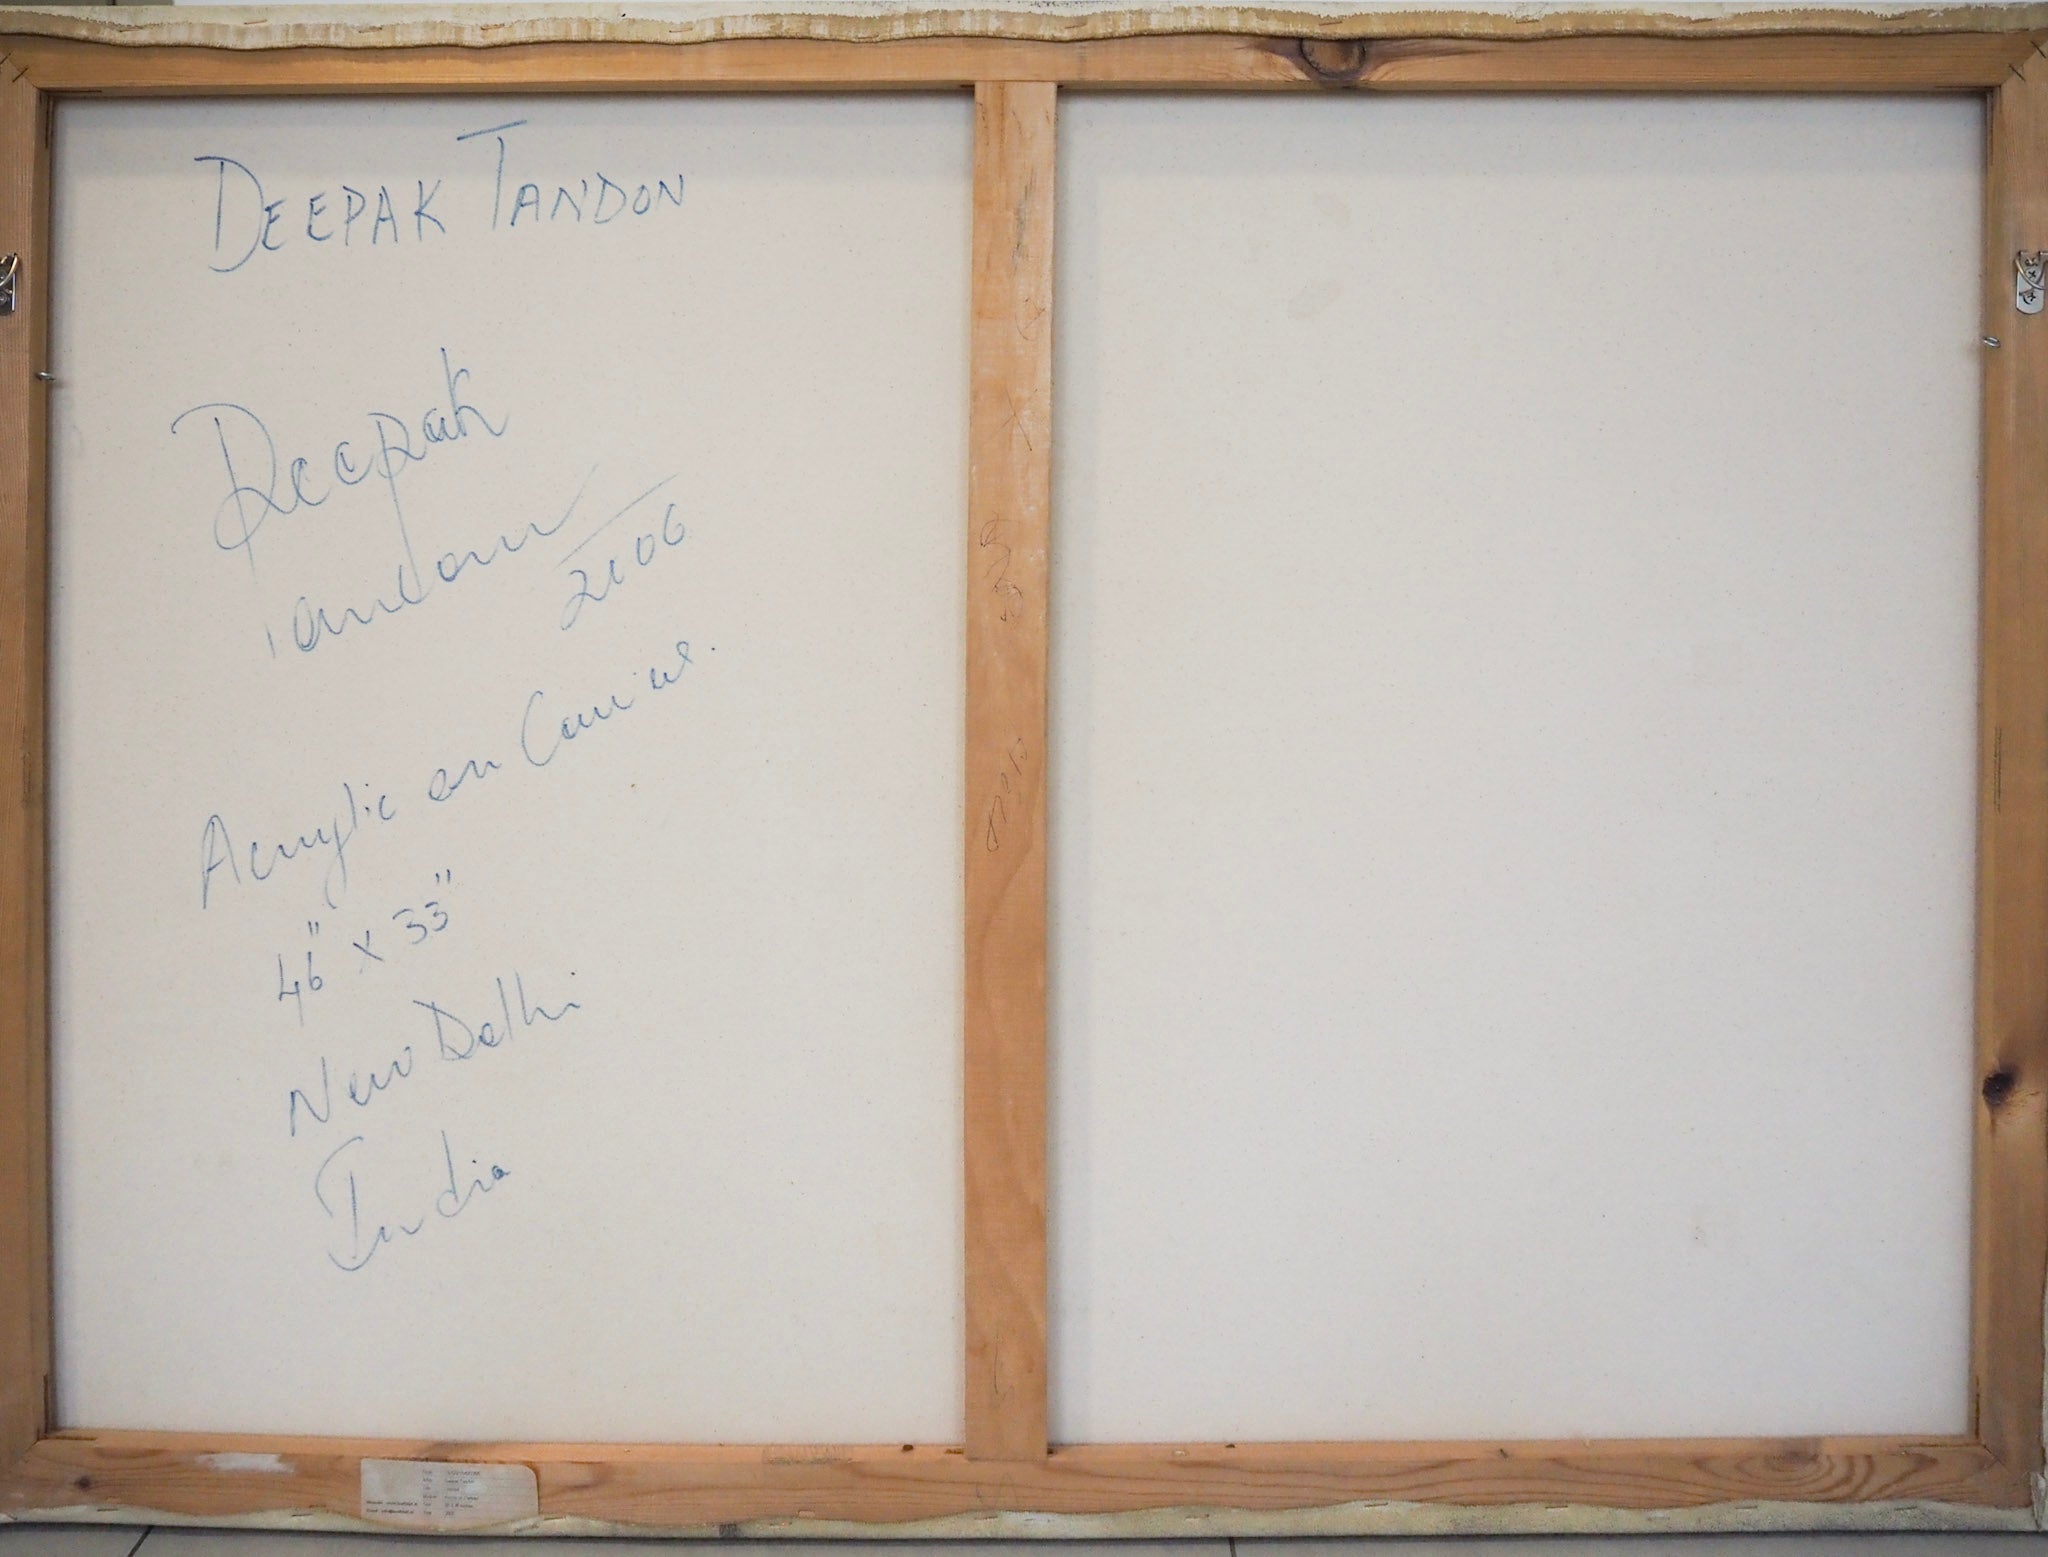 DEEPAK TANDON
Deepak
Tandon
2006
Acrylic on Canvas.
46" x 33"
New Delhi
India